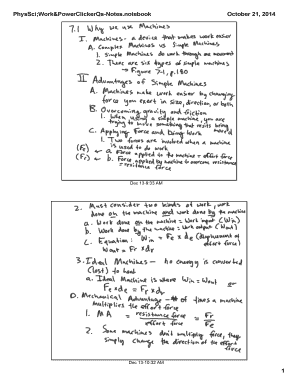 PhysSci;Work&PowerClickerQs-Notes.notebook
October 21, 2014
7.1 Why we use Machines
I. Machines - a device that makes work easier
A. Complex Machines vs Simple Machines
1. Simple Machines do work through one movement
2. There are six types of simple machines
→ Figure 7-1, p.190
II Advantages of Simple Machines
A. Machines make work easier by changing
force you exert in size, direction, or both
B. Overcoming gravity and friction
1. When using a simple machine, you are
trying to move something that resists being
moved
C. Applying Force and Doing Work
1. Two forces are involved when a machine
is used to do work
(Fe) ← a. Force applied to the machine = effort force
(Fr) ← b. Force applied by machine to overcome resistance
= resistance force
Dec 13-9:33 AM
2. Must consider two kinds of work, work
done on the machine and work done by the machine
a. Work done on the machine = Work input (Win)
b. Work done by the machine = Work output (Wout)
c. Equation: Win = Fe x de (displacement of
effort force)
Wout = Fr x dr
3. Ideal Machines - no energy is converted
(lost) to heat
a. Ideal Machine is where Win = Wout
or
Fe x de = Fr x dr
D. Mechanical Advantage - # of times a machine
Multiplies the effort force
1. MA = resistance force / effort force = Fr / Fe
2. Some machines don't multiply force, they
simply change the direction of the effort
force
Dec 13-10:32 AM
1